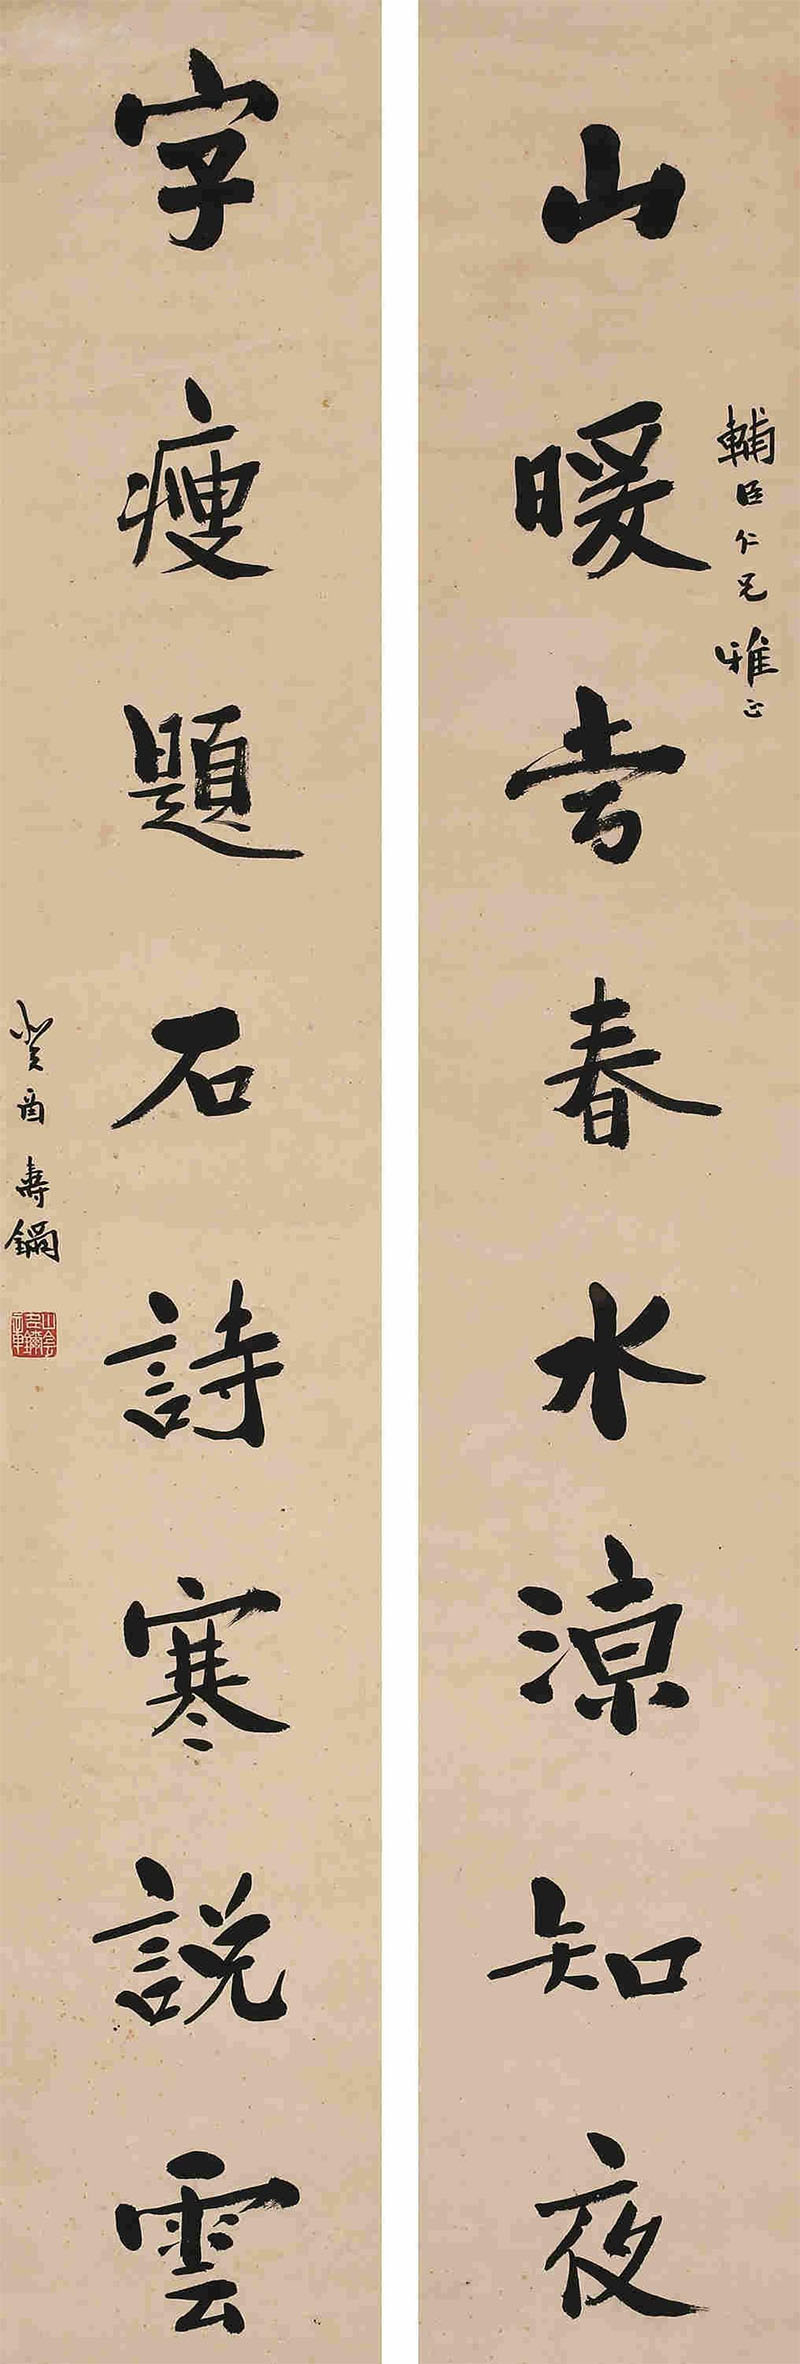 山暖當春水涼知夜
輔臣仁兄雅正
字瘦題石詩寒説雲
癸酉壽鑈